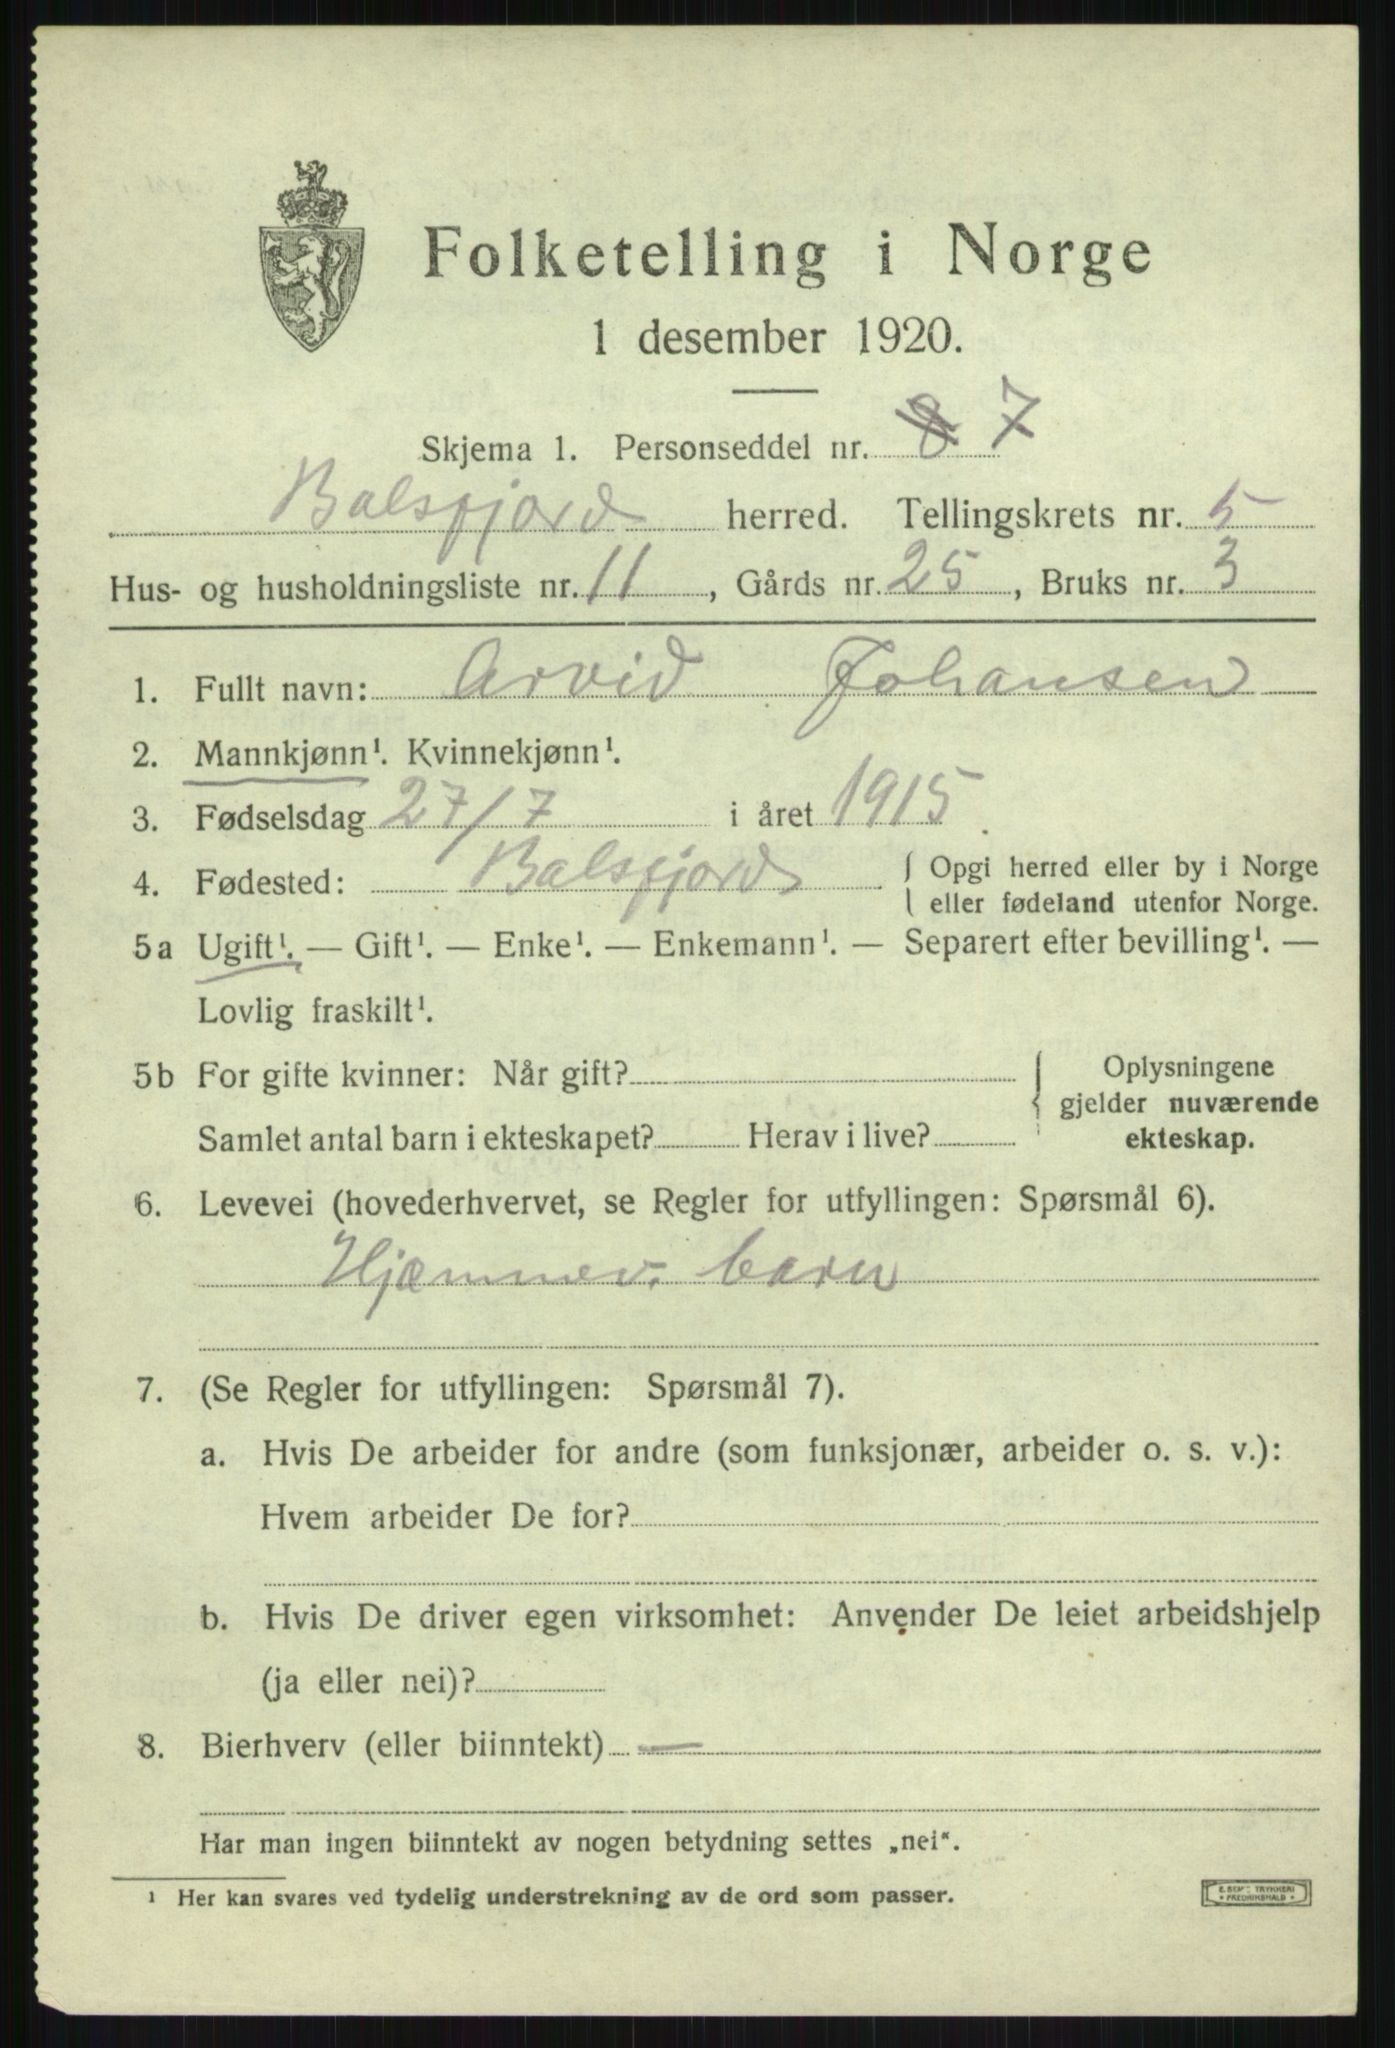 Folketelling i Norge
1 desember 1920.
Skjema 1. Personseddel nr. 8 7
Balsfjord herred. Tellingskrets nr. 5
Hus- og husholdningsliste nr. 11, Gårds nr. 25, Bruks nr. 3
1. Fullt navn: Arvid Johansen
2. Mannkjønn¹. Kvinnekjønn¹.
3. Fødselsdag 27/7 i året 1915.
4. Fødested: Balsfjord { Opgi herred eller by i Norge
eller fødeland utenfor Norge.
5a Ugift¹. — Gift¹. — Enke¹. — Enkemann¹. — Separert efter bevilling¹. —
Lovlig fraskilt¹.
5b For gifte kvinner: Når gift? { Oplysningene
gjelder nuværende
Samlet antal barn i ekteskapet? Herav i live? ekteskap.
6. Levevei (hovederhvervet, se Regler for utfyllingen: Spørsmål 6).
Hjæmmev. barn
7. (Se Regler for utfyllingen: Spørsmål 7).
a. Hvis De arbeider for andre (som funksjonær, arbeider o. s. v.):
Hvem arbeider De for?
b. Hvis De driver egen virksomhet: Anvender De leiet arbeidshjelp
(ja eller nei)?
8. Bierhverv (eller biinntekt) —
Har man ingen biinntekt av nogen betydning settes „nei“.
¹ Her kan svares ved tydelig understrekning av de ord som passer.
TRYKKERI
• FREDRIKSHALD •